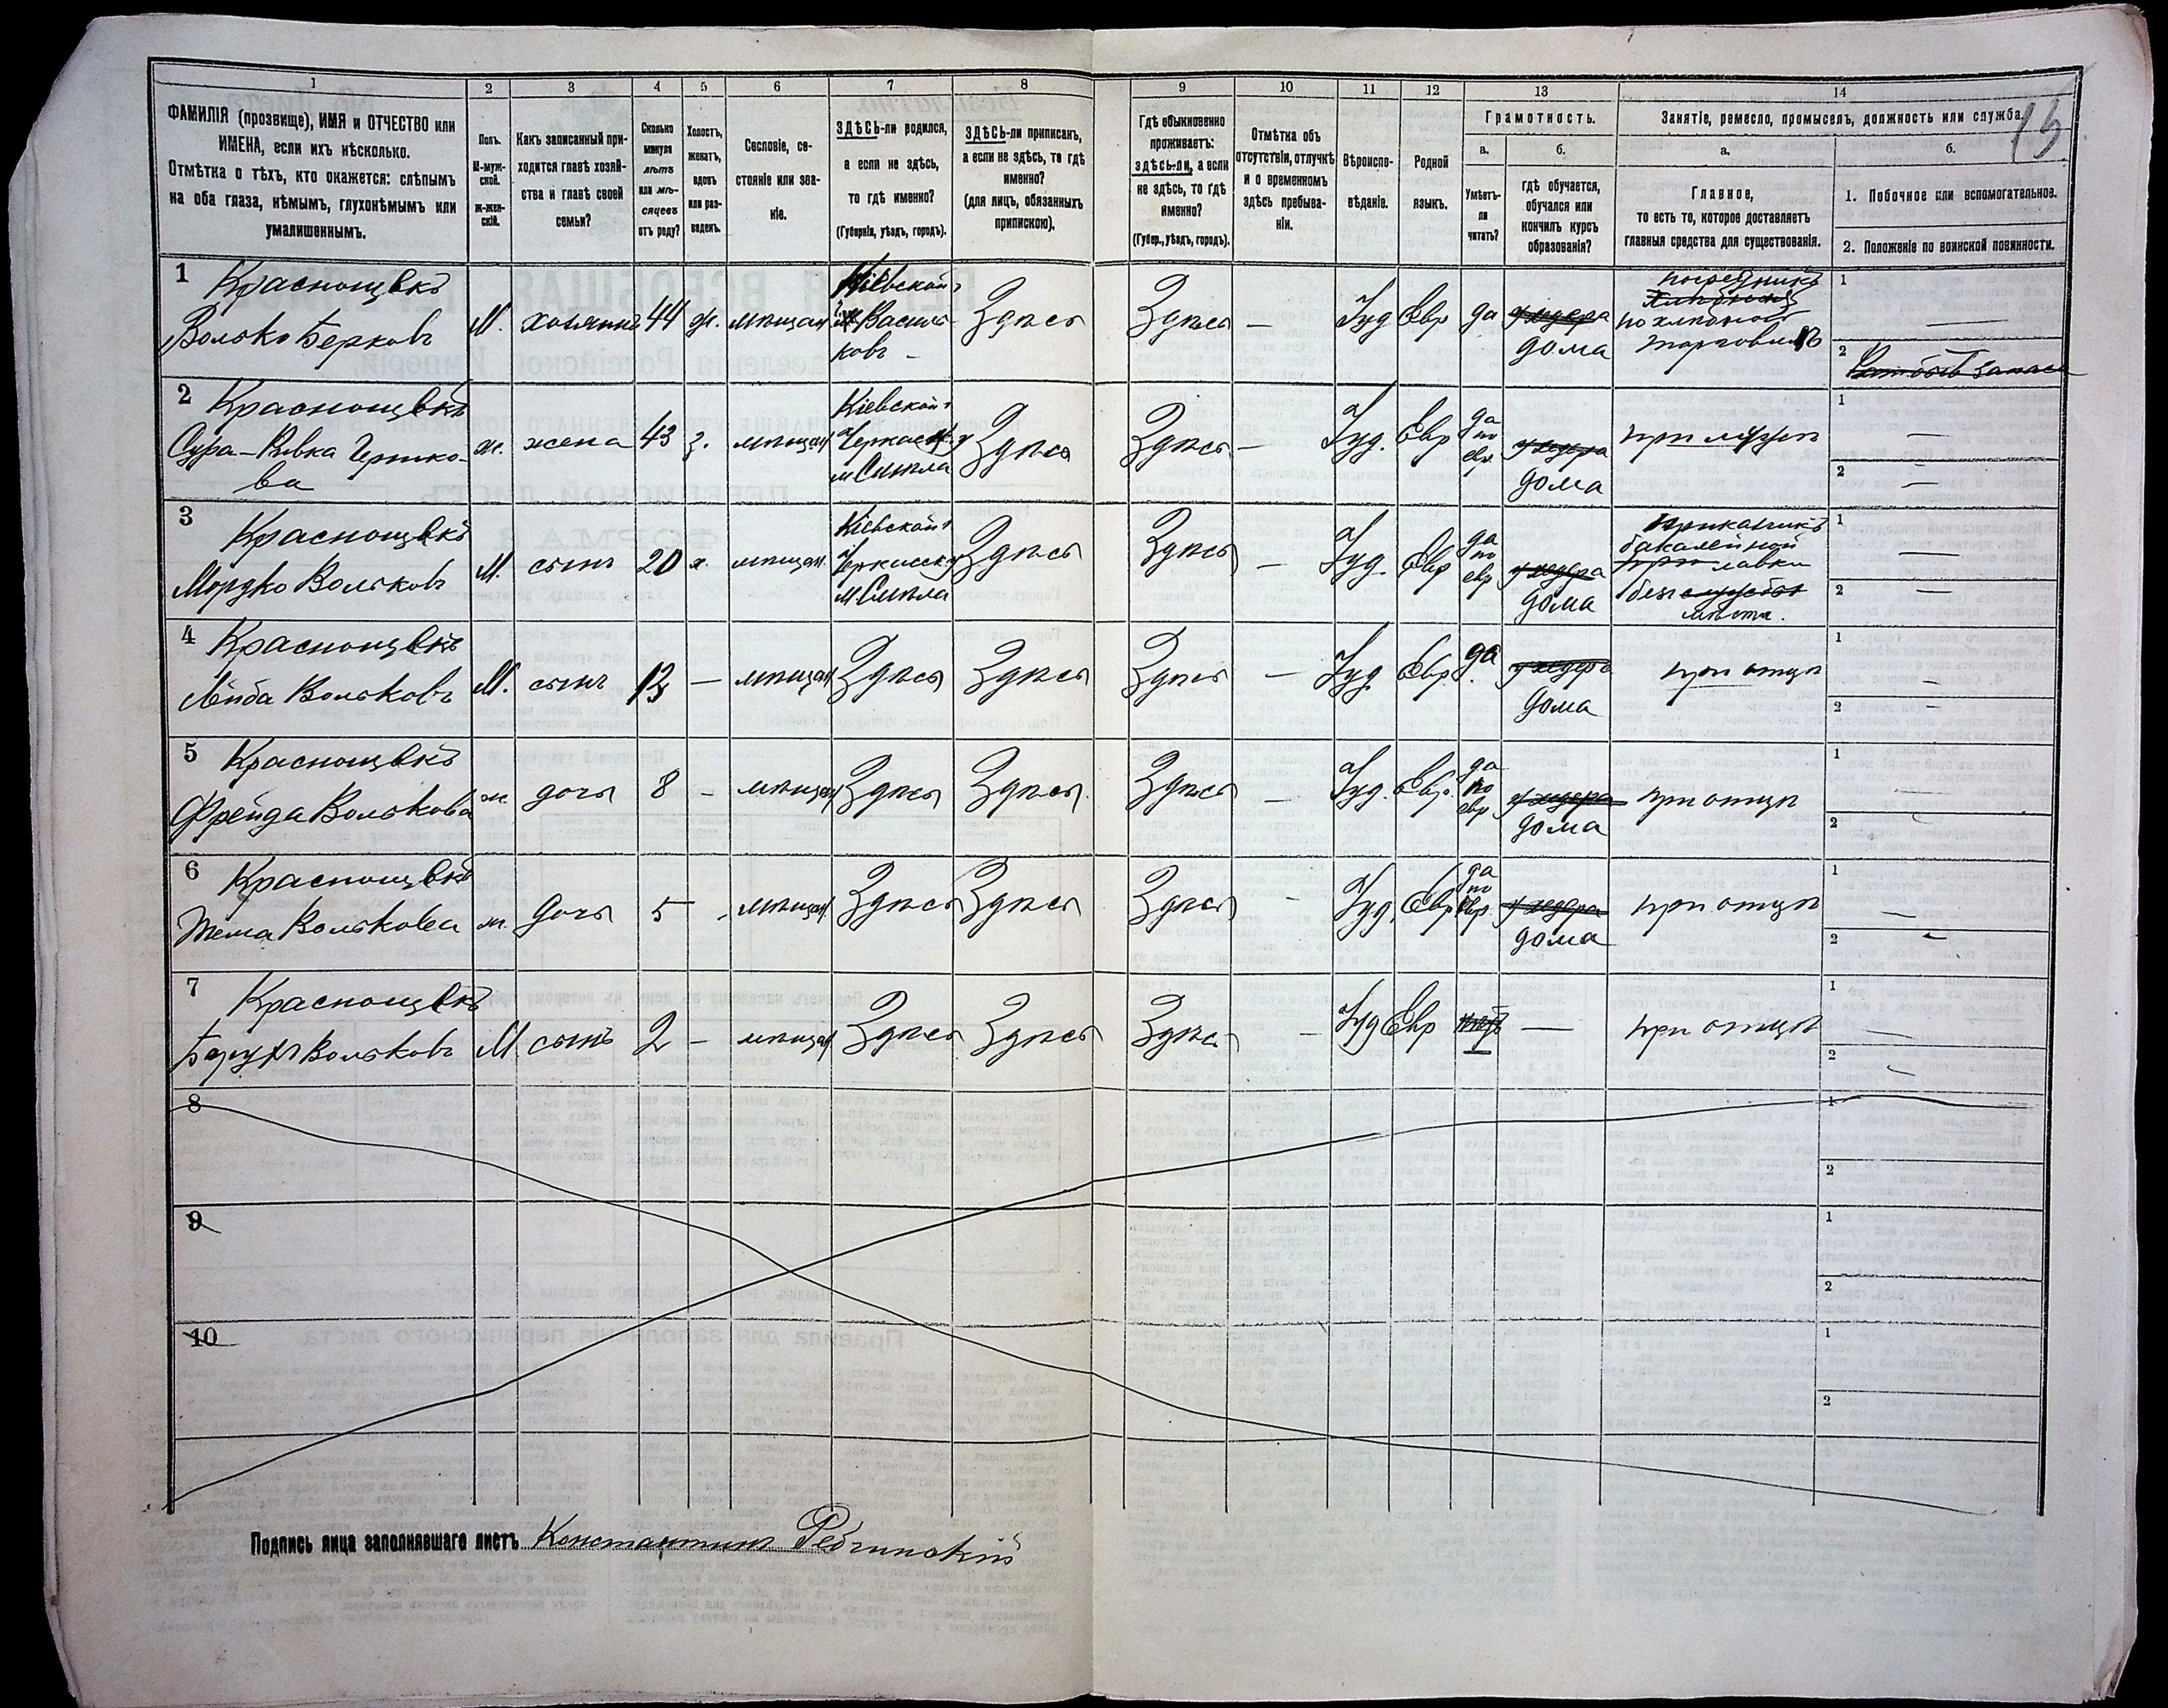 1 2 3 4 5 6 7 8 9 10 11 12 13 14
13
ФАМИЛІЯ (прозвище), ИМЯ и ОТЧЕСТВО или
ИМЕНА, если ихъ нѣсколько.
Отмѣтка о тѣхъ, кто окажется: слѣпымъ
на оба глаза, нѣмымъ, глухонѣмымъ или
умалишеннымъ.
Полъ.
М-муж-
ской.
Ж-жен-
скій.
Какъ записанный при-
ходится главѣ хозяй-
ства и главѣ своей
семьи?
Сколько
минуло
лѣтъ
или мѣ-
сяцевъ
отъ роду?
Холостъ,
женатъ,
вдовъ
или раз-
веденъ.
Сословіе, со-
стояніе или зва-
ніе.
ЗДѢСЬ-ли родился,
а если не здѣсь,
то гдѣ именно?
(Губернія, уѣздъ, городъ).
ЗДѢСЬ-ли приписанъ,
а если не здѣсь, то гдѣ
именно?
(для лицъ, обязанныхъ
припискою).
Гдѣ обыкновенно
проживаетъ:
здѣсь-ли, а если
не здѣсь, то гдѣ
именно?
(Губер., уѣздъ, городъ).
Отмѣтка объ
отсутствіи, отлучкѣ
и о временномъ
здѣсь пребыва-
ніи.
Вѣроиспо-
вѣданіе.
Родной
языкъ.
Грамотность.
а.
Умѣетъ-
ли
читать?
б.
гдѣ обучается,
обучался или
кончилъ курсъ
образованія?
Занятіе, ремесло, промыселъ, должность или служба.
а.
Главное,
то есть то, которое доставляетъ
главныя средства для существованія.
б.
1. Побочное или вспомогательное.
2. Положеніе по воинской повинности.
1 Краснощекъ
Волько Берковъ
М. хозяинъ 44 ж. мѣщан
Кіевской г.
Василь-
ковъ
Здѣсь Здѣсь — Іуд Евр да у хедера
дома
посредникъ
по хлѣбной
торговлѣ
1 —
2 запаса
2 Краснощекъ
Сура-Ривка Гершко-
ва
ж. жена 43 з. мѣщан
Кіевской г
Черкаск. у
м Смѣла
Здѣсь Здѣсь — Іуд. Евр
да
по
евр.
у хедера
дома
при мужѣ
1 —
2 —
3 Краснощекъ
Мордко Вольковъ
М. сынъ 20 х. мѣщан.
Кіевской г
Черкасск у
м Смѣла
Здѣсь Здѣсь — Іуд. Евр
да
по
евр
у хедера
дома
приказчикъ
бакалейной
при лавки
безъ службы
мѣста.
1 —
2 —
4 Краснощекъ
Лейба Вольковъ
М. сынъ 12 — мѣщан Здѣсь Здѣсь Здѣсь — Іуд. Евр. да. у хедера
дома
при отцѣ
1 —
2 —
5 Краснощекъ
Фрейда Волькова
ж. дочь 8 — мѣщан Здѣсь Здѣсь. Здѣсь — Іуд. Евр.
да
по
евр
у хедера
дома
при отцѣ
1 —
2 —
6 Краснощекъ
Тема Волькова
ж. дочь 5 - мѣщан Здѣсь Здѣсь Здѣсь - Іуд. Евр
да
по
евр
у хедера
дома
при отцѣ
1 —
2 —
7 Краснощекъ
Борухъ Вольковъ
М сынъ 2 — мѣщан Здѣсь Здѣсь Здѣсь — Іуд Евр нѣтъ — при отцѣ
1 —
2 —
8
1
2
9
1
2
10
1
2
Подпись лица заполнявшаго листъ Константинъ